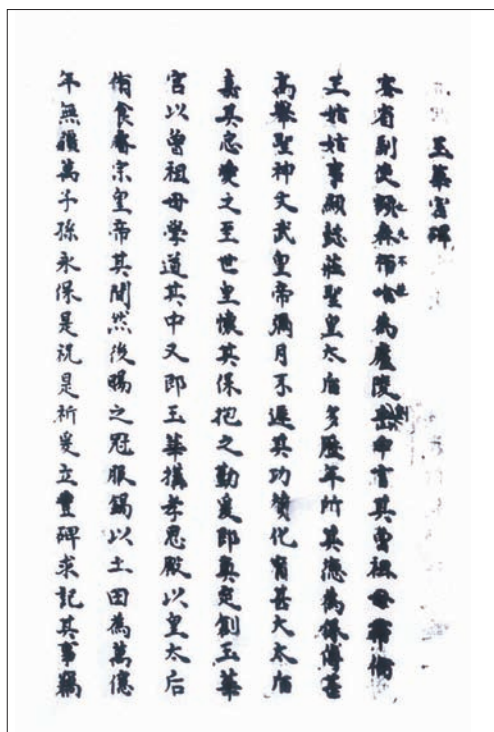 玉華宮碑
客省副使 為廬陵 申言其曾祖母
主姑姑事顯懿莊聖皇太后多歷年所其德為保傅甚
高擧聖神文武皇帝彌月不遲其功贊化育甚大太后
嘉其忠愛之至世皇懷其保抱之勤爰即奠定創玉華
宮以曾祖母學道其中又即玉華搆孝思殿以皇太后
侑食睿宗皇帝其間然後賜之冠服錫以土田為萬億
年無疆萬子孫永保是祝是祈爰立豐碑求記其事竊